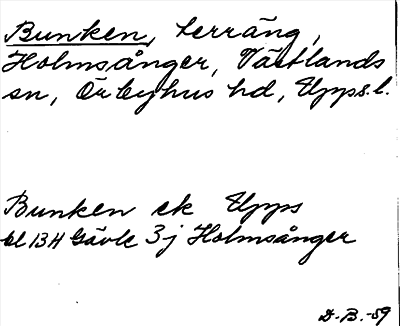 Bunken, terräng,
Holmsånger, Västlands
sn, Örbyhus hd, Upps. l.
Bunken ek Upps
bl 13H Gävle 3j Holmsånger
D.B.-59